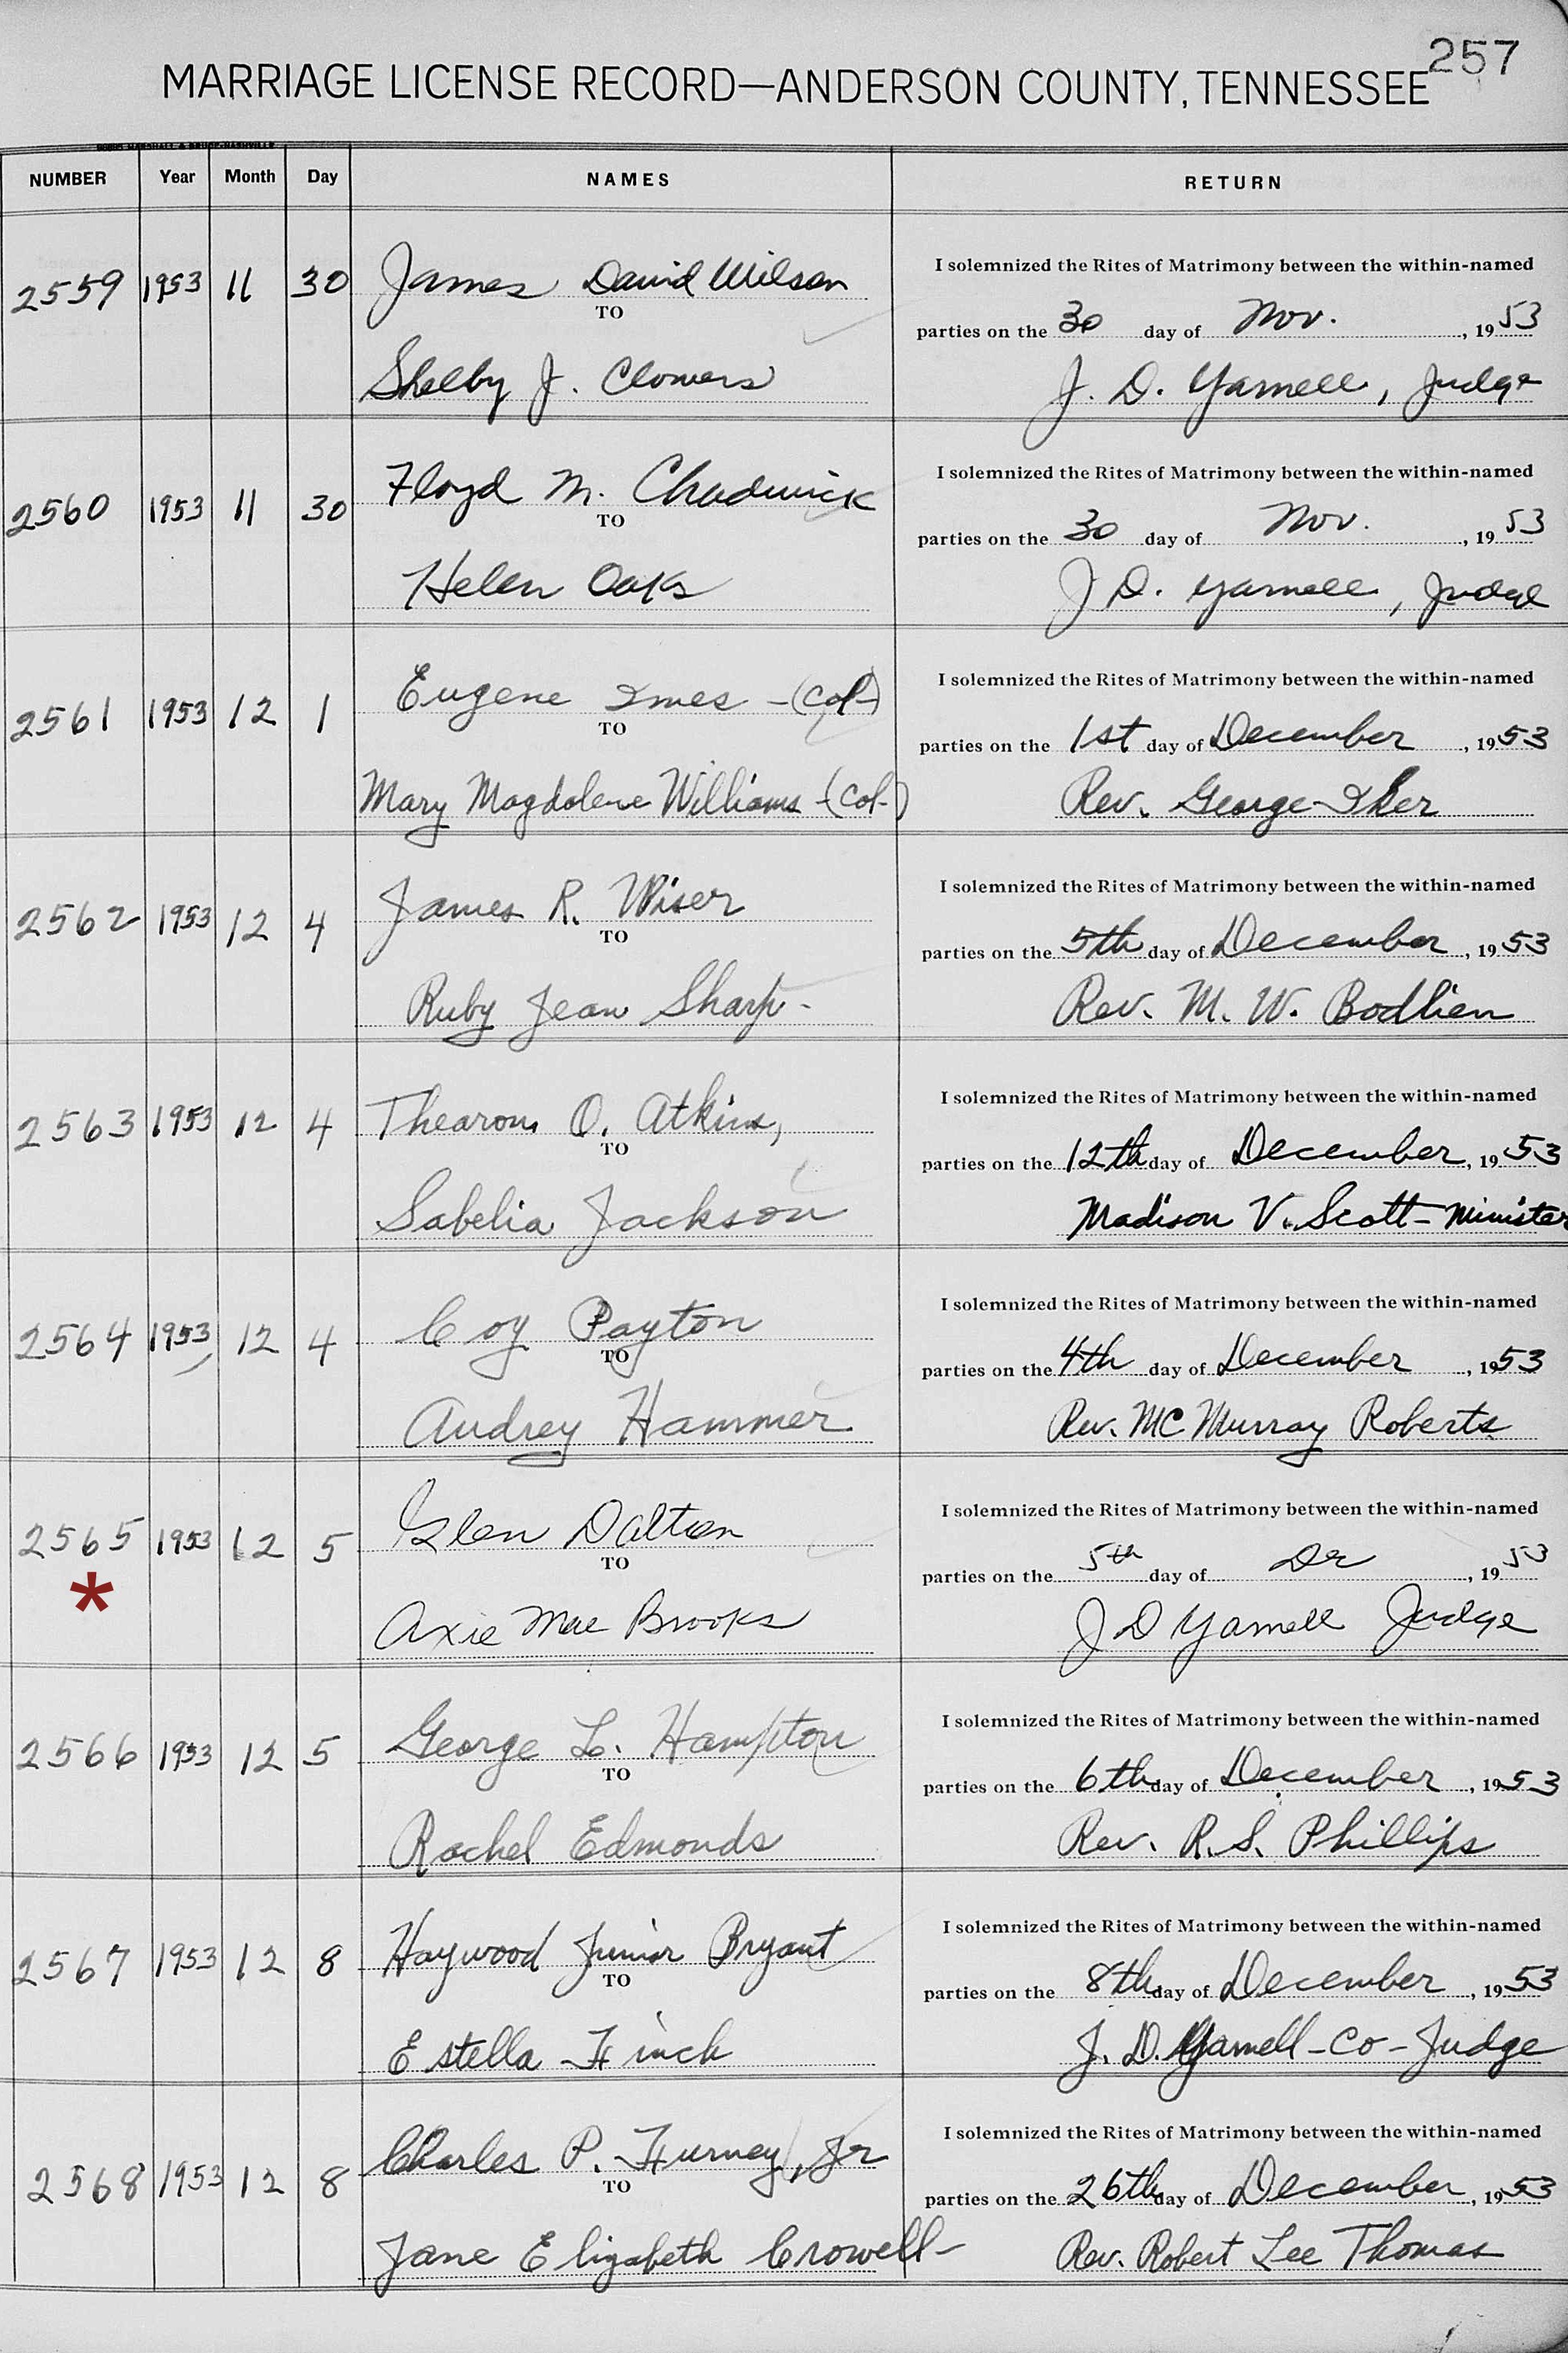 257
MARRIAGE LICENSE RECORD—ANDERSON COUNTY, TENNESSEE
NUMBER Year Month Day NAMES RETURN
2559 1953 11 30 James David Wilson
TO
Shelby J. Clowers
I solemnized the Rites of Matrimony between the within-named
parties on the 30 day of Nov. , 1953
J. D. Yarnell, Judge
2560 1953 11 30 Floyd M. Chadwick
TO
Helen Oaks
I solemnized the Rites of Matrimony between the within-named
parties on the 30 day of Nov. , 1953
J D. Yarnell, Judge
2561 1953 12 1 Eugene Imes -(Col-)
TO
Mary Magdolene Williams -(Col-)
I solemnized the Rites of Matrimony between the within-named
parties on the 1st day of December , 1953
Rev. George Iker
2562 1953 12 4 James R. Wiser
TO
Ruby Jean Sharp-
I solemnized the Rites of Matrimony between the within-named
parties on the 5th day of December , 1953
Rev. M. W. Bodlien
2563 1953 12 4 Thearon O. Atkins,
TO
Sabelia Jackson
I solemnized the Rites of Matrimony between the within-named
parties on the 12th day of December , 1953
Madison V. Scott- Minister
2564 1953 12 4 Coy Payton
TO
Audrey Hammer
I solemnized the Rites of Matrimony between the within-named
parties on the 4th day of December , 1953
Rev. McMurray Roberts
2565 1953 12 5 Glen Dalton
*
TO
Axie Mae Brooks
I solemnized the Rites of Matrimony between the within-named
parties on the 5th day of De , 1953
J D Yarnell Judge
2566 1953 12 5 George L. Hampton
TO
Rachel Edmonds
I solemnized the Rites of Matrimony between the within-named
parties on the 6th day of December , 1953
Rev. R. S. Phillips
2567 1953 12 8 Haywood Junior Bryant
TO
Estella Finch
I solemnized the Rites of Matrimony between the within-named
parties on the 8th day of December , 1953
J. D. Yarnell-Co-Judge
2568 1953 12 8 Charles P. Furney, Jr
TO
Jane Elizabeth Crowell-
I solemnized the Rites of Matrimony between the within-named
parties on the 26th day of December , 1953
Rev. Robert Lee Thomas